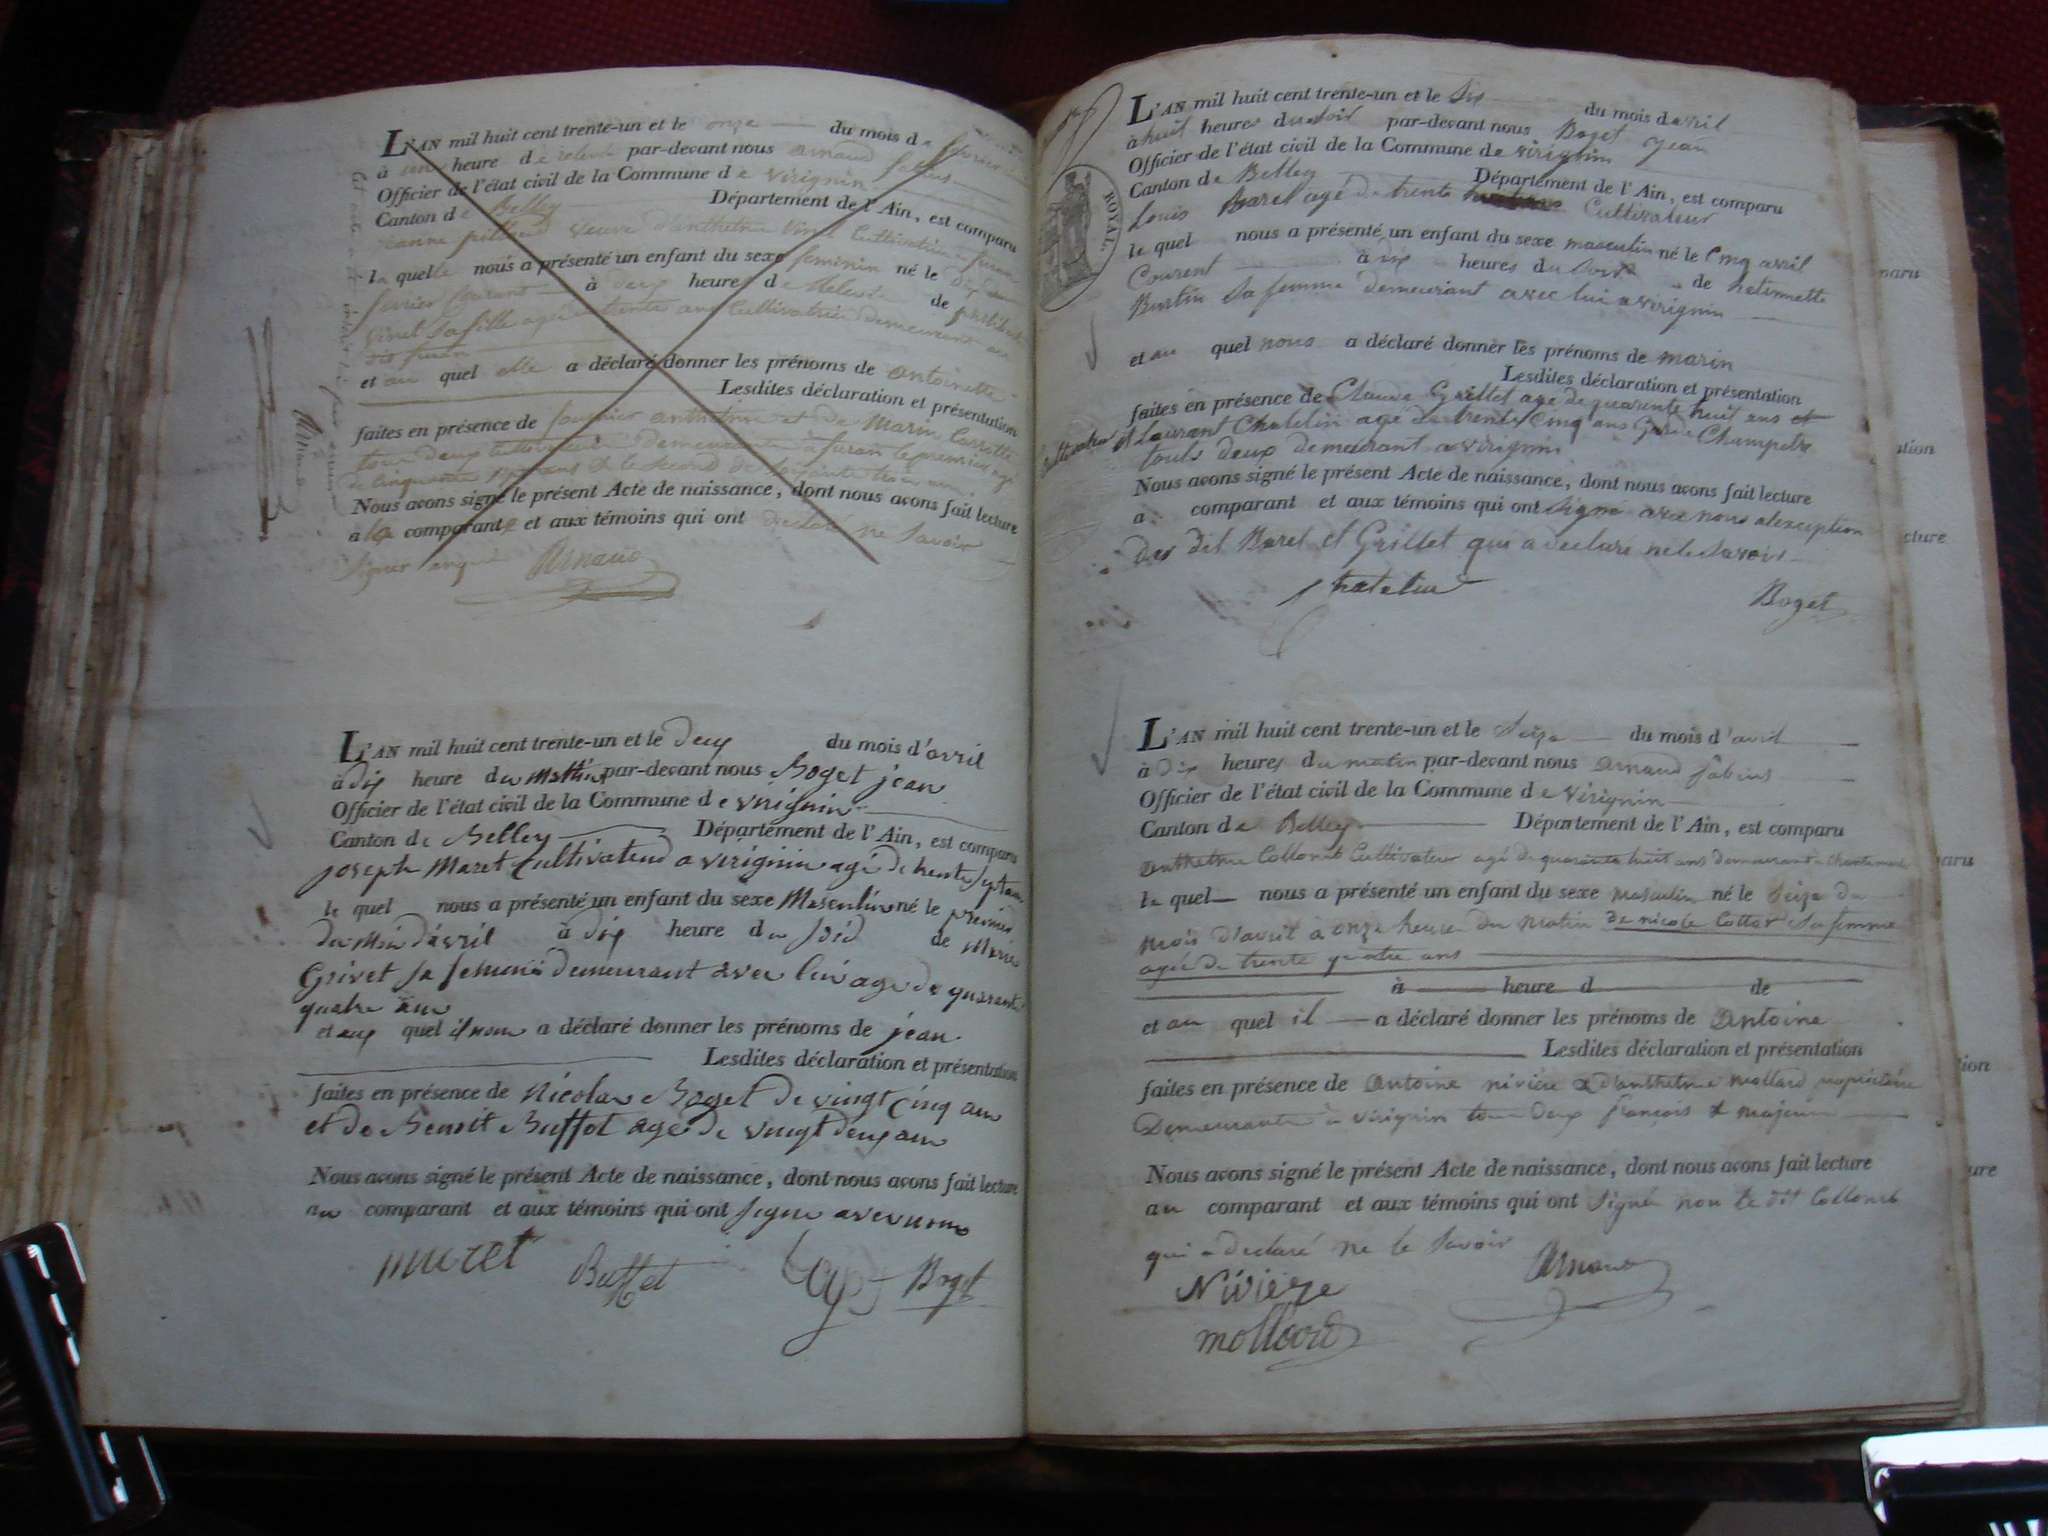 L'AN mil huit cent trente-un et le onze du mois de fevrier
à une heure de relevé par-devant nous arnaud fabius
Officier de l'état civil de la Commune de virignin
Canton de Belley Département de l'Ain, est comparu
jeanne veuve d'anthelme Vinet Cultivatrice a furan
la quelle nous a présenté un enfant du sexe feminin né le dix
fevrier Courant à deux heures de de
Vinet sa fille agée de trente ans Cultivatrice demeurant au
dit furan
et au quel elle a déclaré donner les prénoms de antoinette
Lesdites déclaration et présentation
faites en présence de anthelme et de Marin
tous deux demeurant a furan le premier agé
de cinquante ans & le second de soixante trois ans
Nous avons signé le présent Acte de naissance, dont nous avons fait lecture
à la comparante et aux témoins qui ont déclaré ne savoir
signer Arnaud
L'AN mil huit cent trente-un et le deux du mois d'avril
à dix heure du Mattin par-devant nous Boget jean
Officier de l'état civil de la Commune de virignin
Canton de Belley Département de l'Ain, est comparu
joseph Maret Cultivateur a virignin agé de trente sept ans
le quel nous a présenté un enfant du sexe Masculin né le premier
du Moi d'avril à dix heure du soid de Marie
Grivet sa femme demeurant avec lui age de quarente
quatre ans
et aux quel il nous a déclaré donner les prénoms de jean
Lesdites déclaration et présentation
faites en présence de Nicolas Boget de vingt cinq ans
et de Benoit Buffet age de vingt deux ans
Nous avons signé le présent Acte de naissance, dont nous avons fait lecture
au comparant et aux témoins qui ont signe avec nous
maret Buffet Boget
L'AN mil huit cent trente-un et le Six du mois davril
à huit heures du soir par-devant nous Boget jean
Officier de l'état civil de la Commune de virignin
Canton de Belley Département de l'Ain, est comparu
ROYAL.
Louis Baret agé de trente Cultivateur
le quel nous a présenté un enfant du sexe masculin né le Cinq avril
Courent à dix heures du soir de
Burtin sa femme demeurant avec lui a virignin
et au quel nous a déclaré donner les prénoms de marin
Lesdites déclaration et présentation
faites en présence de Claude Grillet age de quarente huit ans et
et laurant Chatelin agé de trente Cinq ans Garde Champetre
touts deux demeurant a virignin
Nous avons signé le présent Acte de naissance, dont nous avons fait lecture
a comparant et aux témoins qui ont signe avec nous alexception
des dit Baret et Grillet qui a declaré ne le savoir
Boget
L'AN mil huit cent trente-un et le Seize du mois d'avril
à Dix heures du matin par-devant nous arnaud fabius
Officier de l'état civil de la Commune de virignin
Canton de Belley Département de l'Ain, est comparu
anthelme Collomb Cultivateur agé de quarante huit ans demeurant a
le quel nous a présenté un enfant du sexe masculin né le Seize du
mois d'avril à onze heure du matin de nicole Cottar sa femme
agée de trente quatre ans
à heure d de
et au quel il a déclaré donner les prénoms de antoine
Lesdites déclaration et présentation
faites en présence de antoine nivière & d'anthelme mollard propriétaire
Demeurants à virignin tous deux français & majeurs
Nous avons signé le présent Acte de naissance, dont nous avons fait lecture
au comparant et aux témoins qui ont signé non le dit Collomb
qui a declaré ne le savoir Arnaud
Nivière
mollard